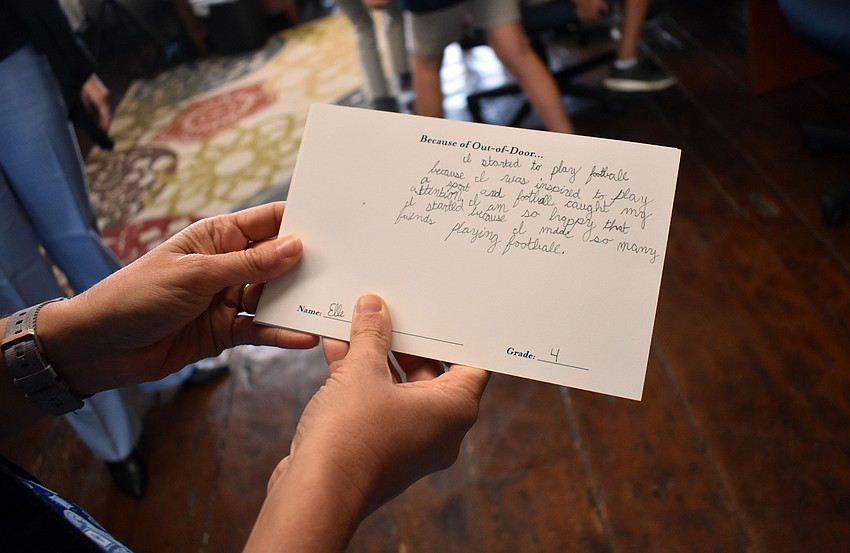 Because of Out-of-Door...
I started to play football
because I was inspired to play
a sport and football caught my
attention, I am so happy that
I started because I made so many
friends playing football.
Name: Elle
Grade: 4